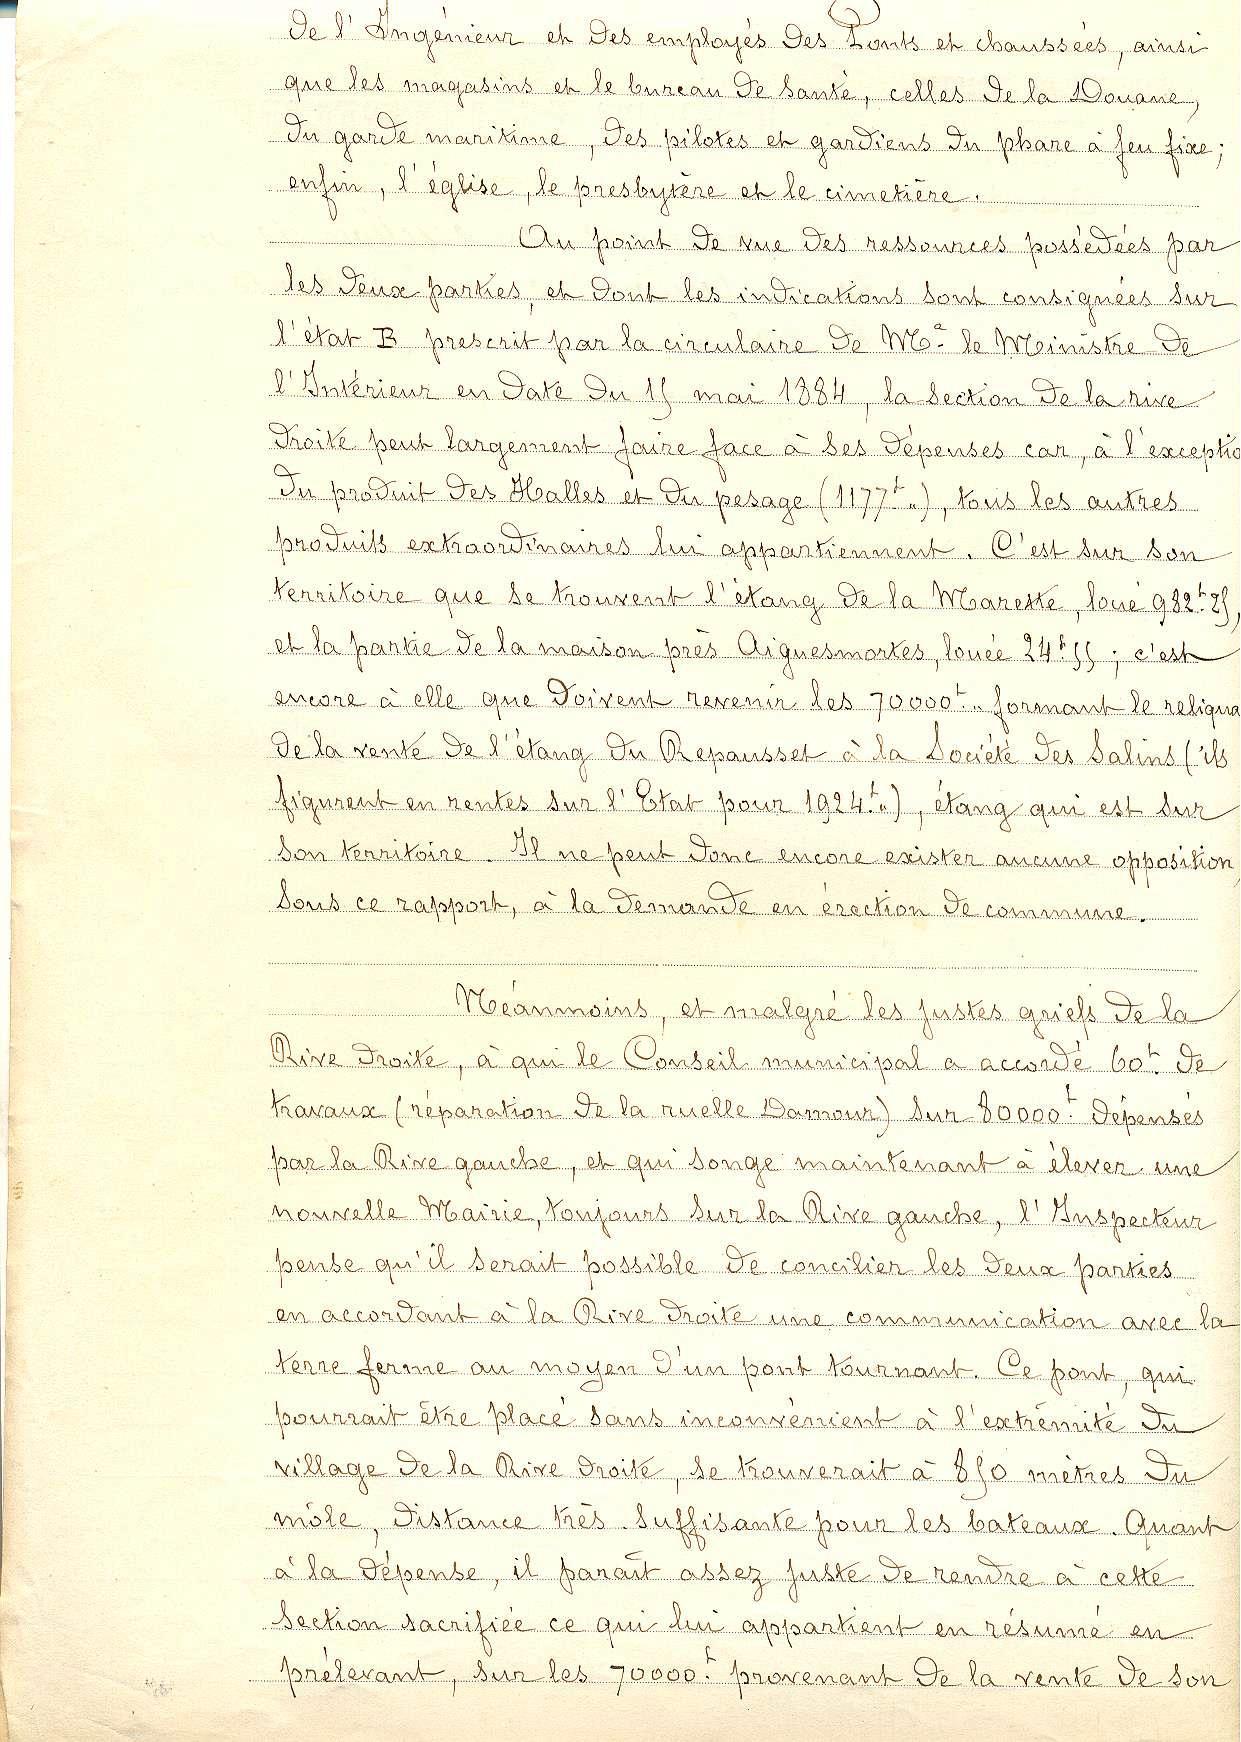 de l'Ingénieur et des employés des Ponts et chaussées, ainsi
que les magasins et le bureau de santé, celles de la Douane,
du garde maritime, des pilotes et gardiens du phare à feu fixe;
enfin, l'église, le presbytère et le cimetière.
Au point de vue des ressources possédées par
les deux parties, et dont les indications sont consignées sur
l'état B prescrit par la circulaire de Mr le Ministre de
l'Intérieur en date du 15 mai 1884, la section de la rive
droite peut largement faire face à ses dépenses car, à l'exceptio
du produit des Halles et du pesage (1177f "), tous les autres
produits extraordinaires lui appartiennent. C'est sur son
territoire que se trouvent l'étang de la Marette, loué 982f 25,
et la partie de la maison près Aiguesmortes, louée 24f 55; c'est
encore à elle que doivent revenir les 70000f " formant le reliqua
de la vente de l'étang du Repausset à la Société des Salins (ils
figurent en rentes sur l'Etat pour 1924f "), étang qui est sur
son territoire. Il ne peut donc encore exister aucune opposition,
sous ce rapport, à la demande en érection de commune.
Néanmoins, et malgré les justes griefs de la
Rive droite, à qui le Conseil municipal a accordé 60f de
travaux (réparation de la ruelle Damour) sur 80000f dépensés
par la Rive gauche, et qui songe maintenant à élever une
nouvelle Mairie, toujours sur la Rive gauche, l'Inspecteur
pense qu'il serait possible de concilier les deux parties
en accordant à la Rive droite une communication avec la
terre ferme au moyen d'un pont tournant. Ce pont, qui
pourrait être placé sans inconvénient à l'extrémité du
village de la Rive droite, se trouverait à 850 mètres du
môle, distance très suffisante pour les bateaux. Quant
à la dépense, il paraît assez juste de rendre à cette
section sacrifiée ce qui lui appartient en résumé en
prélevant, sur les 70000f provenant de la vente de son